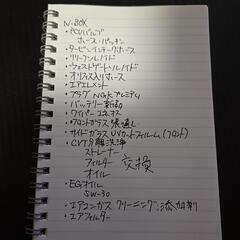 N-BOX
・PCVバルブ
ホース・パッキン
・タービンインテークホース
・リリーフソレノイド
・ウェストゲートソレノイド
・オリフィス入りホース
・エアエレメント
・プラグ NGKプレミアム
・バッテリー 新品
・ワイパー エネオス
・フロントガラス 張り直し
・サイドガラス UVカットフィルム(フロント)
・CVT分解洗浄
ストレーナー
フィルター 交換
オイル
・EGオイル
5W-30
・エアコンガス クリーニング 添加剤
・エアフィルター